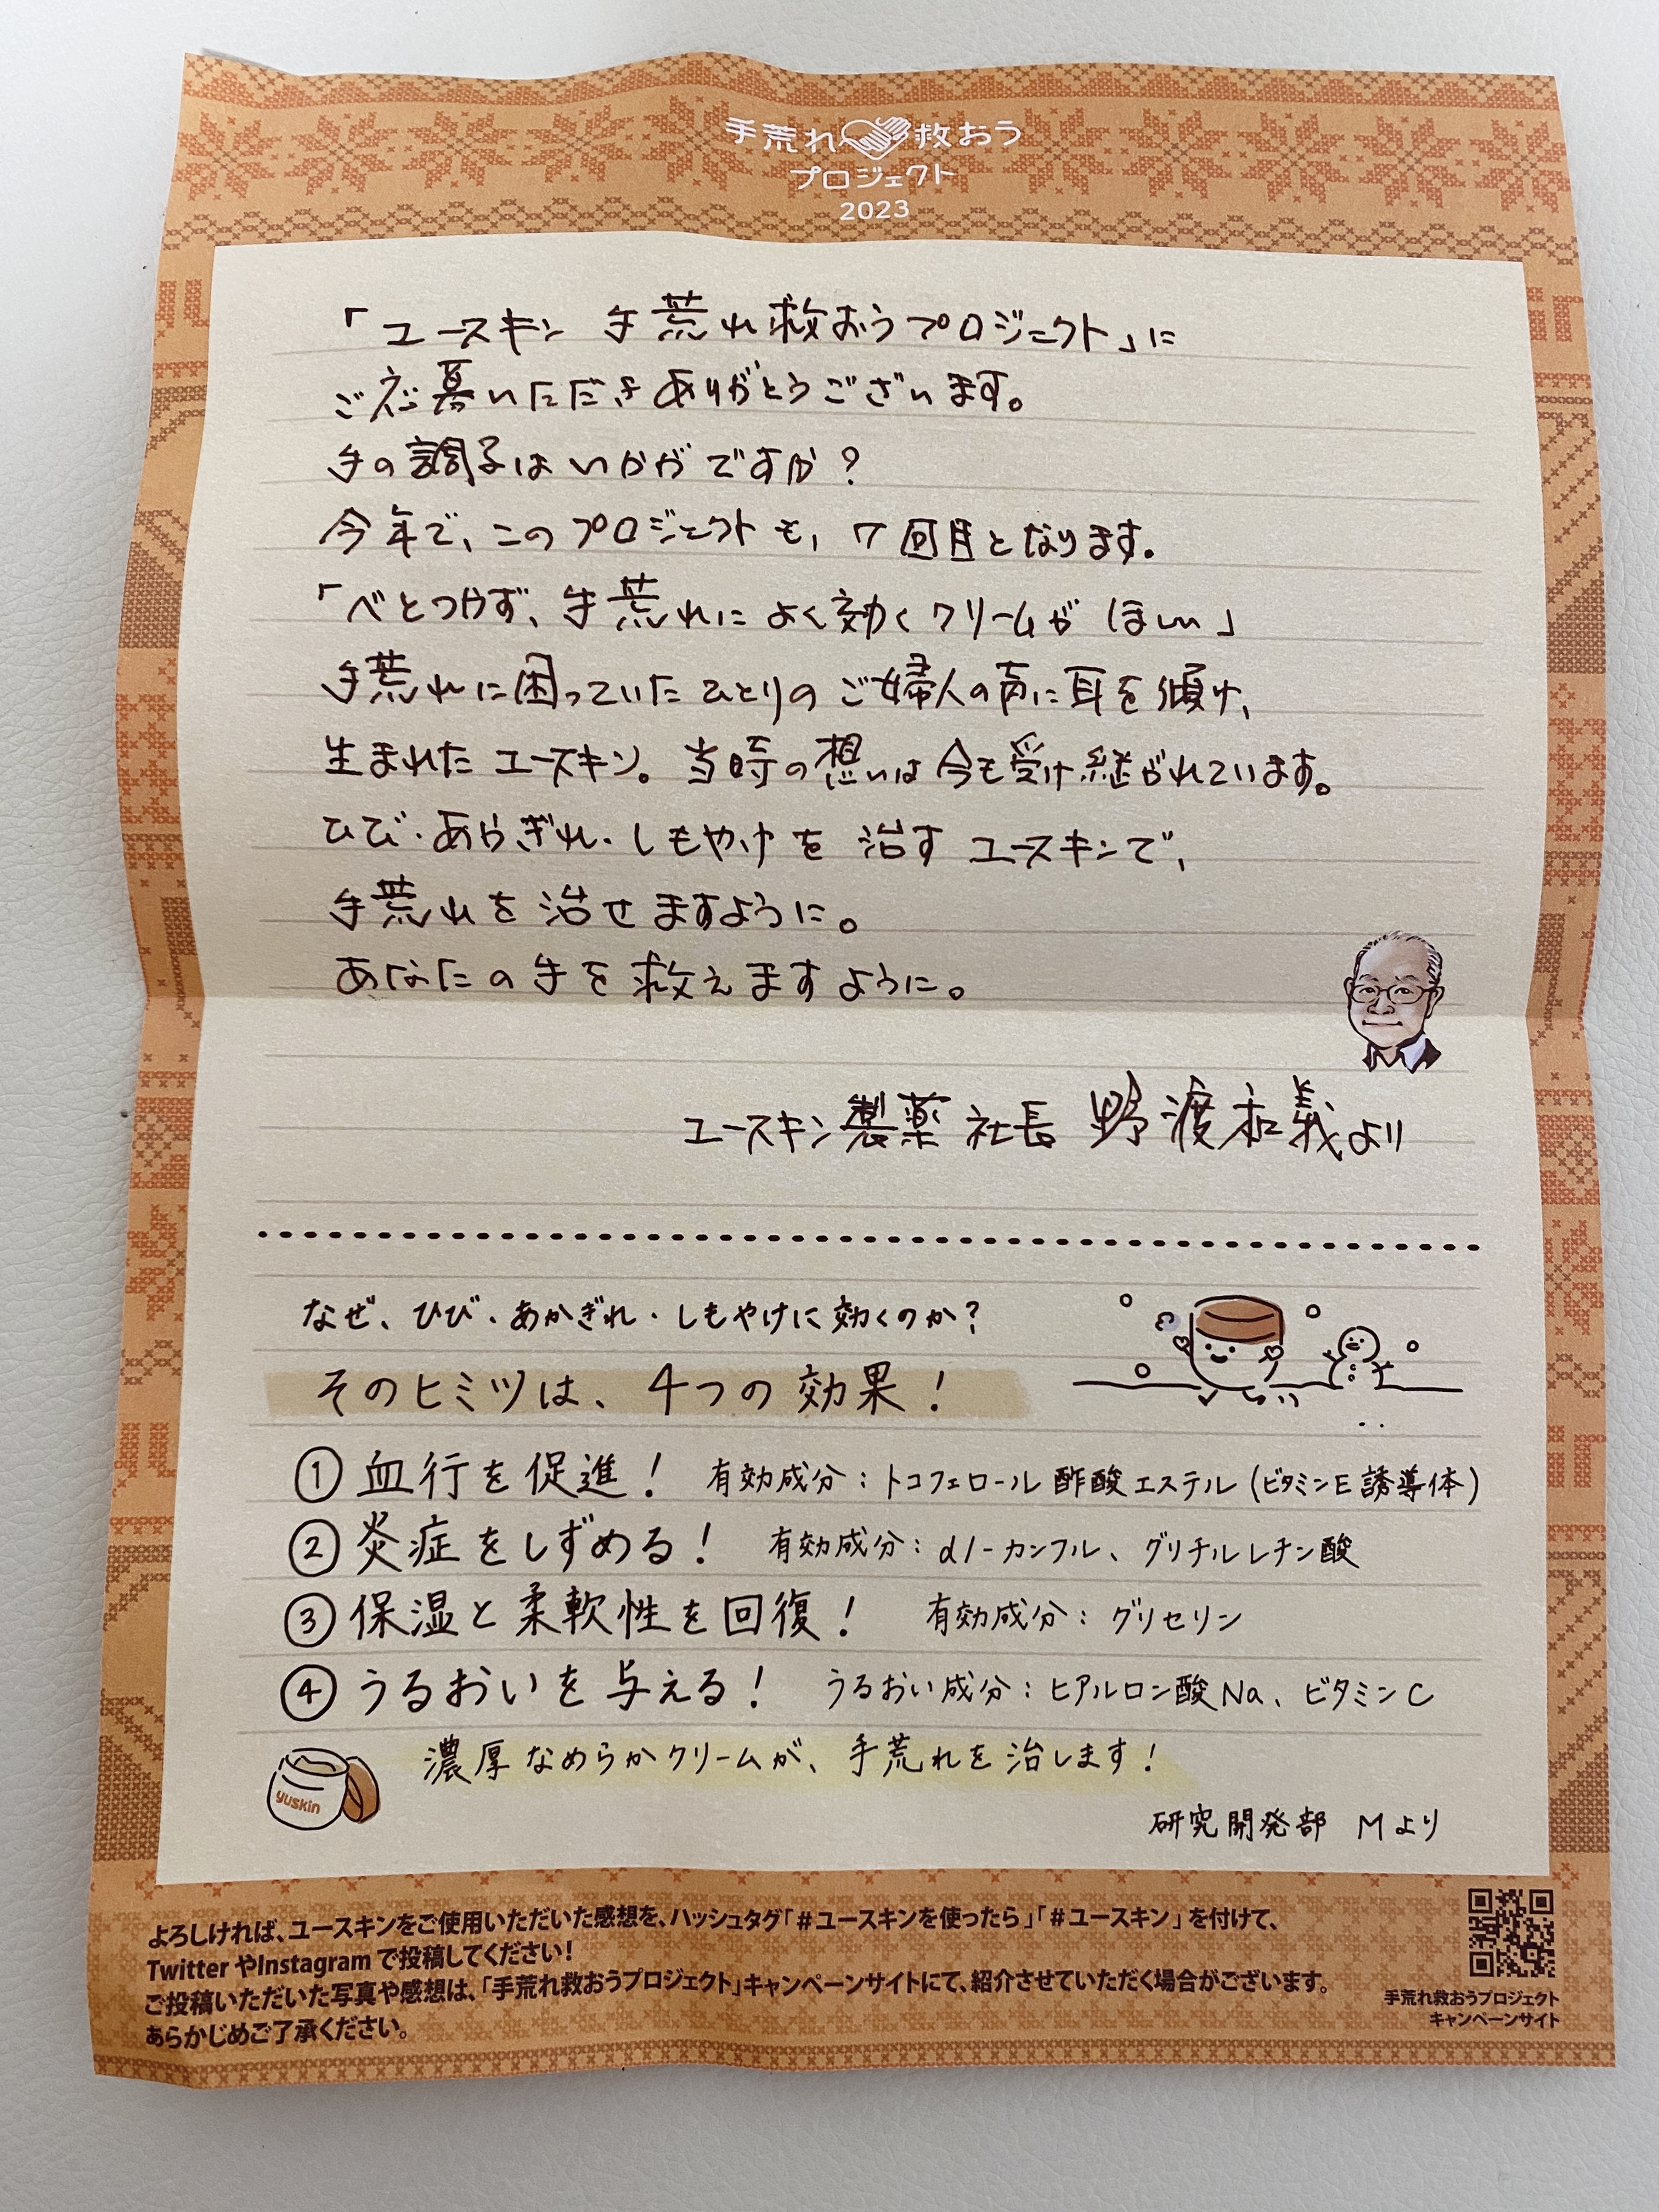 手荒れ救おう
プロジェクト
2023
「ユースキン 手荒れ救おうプロジェクト」に
ご応募いただきありがとうございます。
手の調子はいかがですか？
今年で、このプロジェクトも、7回目となります。
「べとつかず、手荒れによく効くクリームがほしい」
手荒れに困っていたひとりのご婦人の声に耳を傾け、
生まれたユースキン。当時の想いは今も受け継がれています。
ひび・あかぎれ・しもやけを治すユースキンで、
手荒れを治せますように。
あなたの手を救えますように。
ユースキン製薬 社長 野渡和義より
なぜ、ひび・あかぎれ・しもやけに効くのか？
そのヒミツは、4つの効果！
①血行を促進！ 有効成分：トコフェロール酢酸エステル（ビタミンE誘導体）
②炎症をしずめる！ 有効成分：dl-カンフル、グリチルレチン酸
③保湿と柔軟性を回復！ 有効成分：グリセリン
④うるおいを与える！ うるおい成分：ヒアルロン酸Na、ビタミンC
濃厚なめらかクリームが、手荒れを治します！
yuskin
研究開発部 Mより
よろしければ、ユースキンをご使用いただいた感想を、ハッシュタグ「#ユースキンを使ったら」「#ユースキン」を付けて、
TwitterやInstagramで投稿してください！
ご投稿いただいた写真や感想は、「手荒れ救おうプロジェクト」キャンペーンサイトにて、紹介させていただく場合がございます。
あらかじめご了承ください。
手荒れ救おうプロジェクト
キャンペーンサイト